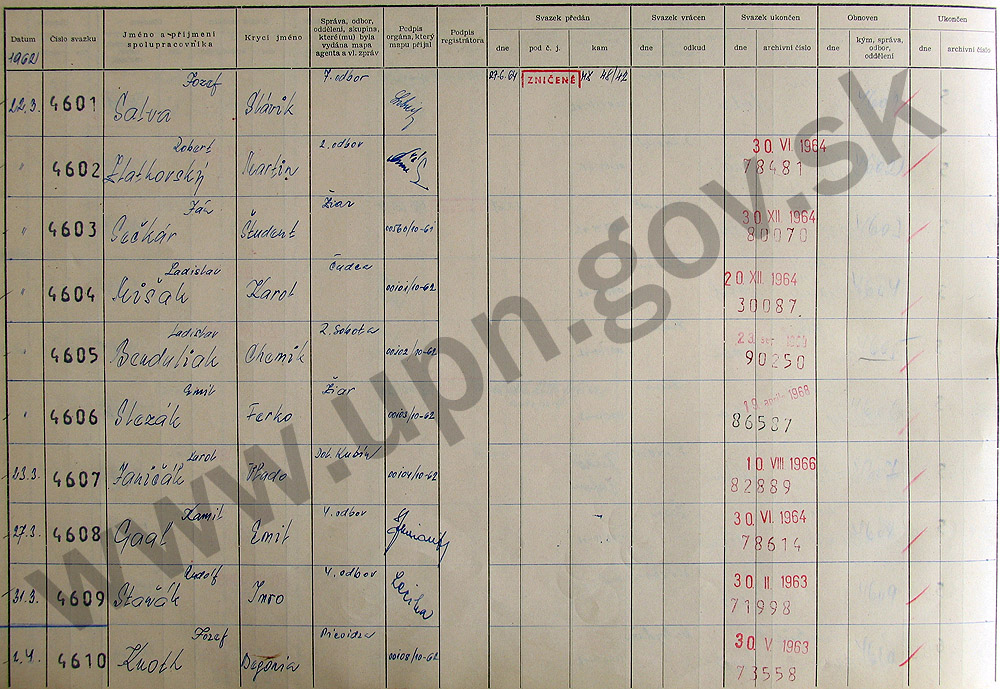 Datum Číslo svazku Jméno a příjmení spolupracovníka Krycí jméno Správa, odbor, oddělení, skupina, které(mu) byla vydána mapa agenta a vl. zpráv Podpis orgána, který mapu přijal Podpis registrátora Svazek předán Svazek vrácen Svazek ukončen Obnoven Ukončen
dne pod č. j. kam dne odkud dne archivní číslo dne kým, správa, odbor, oddělení dne archivní číslo
1962
Jozef 7. odbor 29.6.64 ZNIČENÉ 48/42
22.3. 4601 Salva Slávik
Robert 2. odbor 30 VI. 1964
" 4602 Zlatkovský Martin 78481
Ján Žiar 30 XII. 1964
" 4603 Sečkár Študent 00560/10-61 80070
Ladislav Čadca 20 XII. 1964
" 4604 Mišák Karol 00101/10-62 30087
Ladislav R. Sobota
" 4605 Benduliak Chemik 00102/10-62 90250
Emil Žiar 19. apríla 1968
" 4606 Slezák Ferko 00103/10-62 86587
Karol Dol. Kubín 10 VIII 1966
23.3. 4607 Janičák Vlado 00104/10-62 82889
Kamil 4. odbor 30 VI. 1964
27.3. 4608 Gaal Emil 78614
Rudolf 4. odbor 30 II. 1963
31.3. 4609 Staňák Imro 71998
Jozef Prievidza 30 V. 1963
2.4. 4610 Knoth 00108/10-62 73558
www.upn.gov.sk